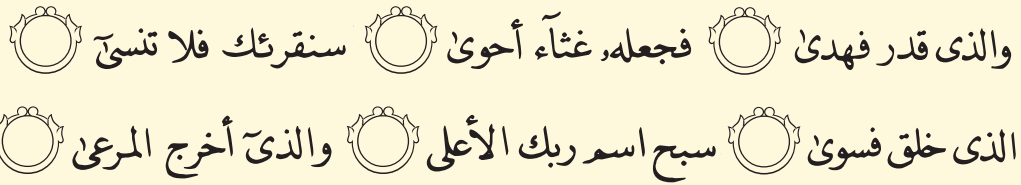 والذى قدر فهدىٰ ۝ فجعلهۥ غثآء أحوىٰ ۝ سنقرئك فلا تنسىٰٓ ۝
الذى خلق فسوىٰ ۝ سبح اسم ربك الأعلى ۝ والذىٓ أخرج المرعىٰ ۝